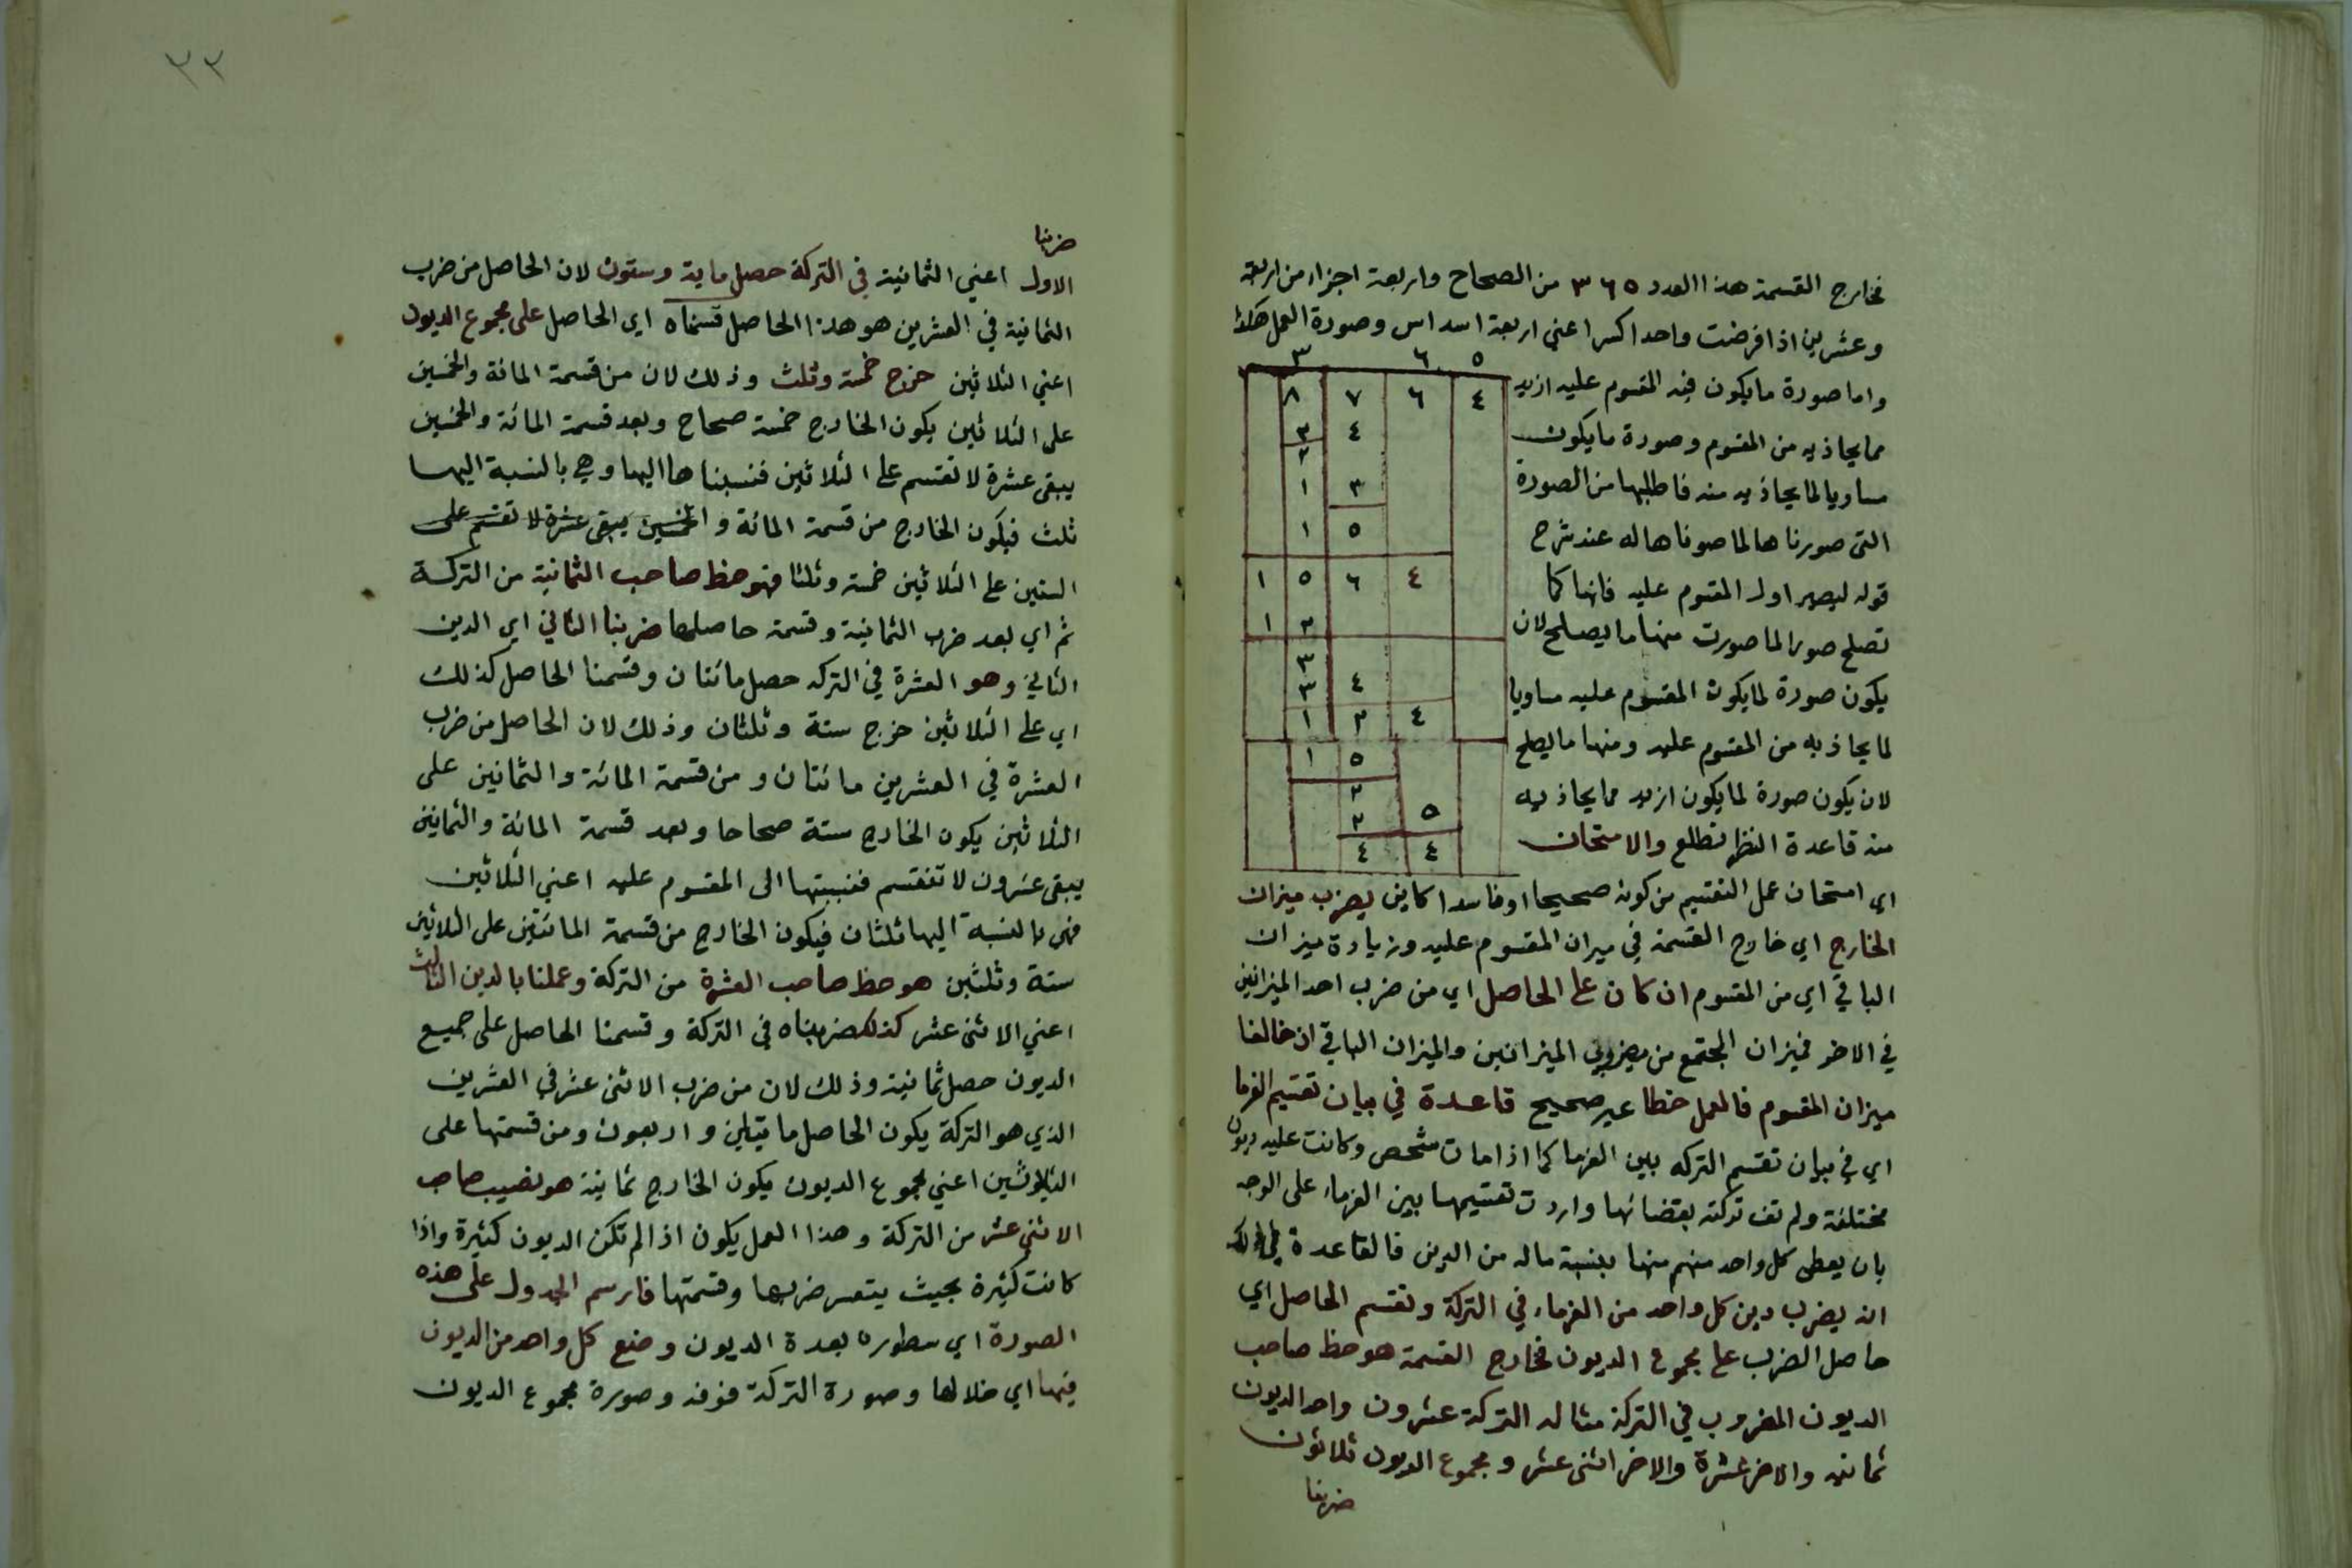 فخارج القسمة هذا العدد ٣٦٥ من الصحاح واربعة اجزاء من اربعة
وعشرين اذا فرضت واحدا كسرا اعني اربعة اسداس وصورة العمل هكذا
واما صورة ما يكون فيه المقسوم عليه ازيد
مما يحاذيه من المقسوم وصورة ما يكون
مساويا لما يحاذيه منه فاطلبها من الصورة
التى صورناها لما صوناها له عند شرح
قوله ليصير اول المقسوم عليه فانها كما
تصلح صورا لما صورت منها ما يصلح لان
يكون صورة لما يكون المقسوم عليه مساويا
لما يحاذيه من المقسوم عليه ومنها ما يصلح
لان يكون صورة لما يكون ازيد مما يحاذيه
منه قاعدة النظر تطلع والامتحان
٣ ٦ ٥
٨ ٧ ٦ ٤
٣ ٤
٢
١ ٣
١ ٥
١ ٥ ٦ ٤
١ ٣
٣
٣ ٤
١ ٣ ٤
١ ٥
٢
٢ ٥
٤ ٤
اي امتحان عمل التقسيم من كونه صحيحا او فاسدا كاين بضرب ميزان
الخارج اي خارج القسمة في ميزان المقسوم عليه وزيادة ميزان
الباقي اي من المقسوم ان كان على الحاصل اي من ضرب احد الميزانين
في الاخر فميزان المجتمع من مضروبي الميزانين والميزان الباقي ان خالفا
ميزان المقسوم فالعمل خطا غير صحيح قاعدة في بيان تقسيم الغرما
اي في بيان تقسيم التركه بين الغرما كما اذا مات شخص وكانت عليه ديون
مختلفة ولم تف تركته بقضائها واردت تقسيمها بين الغرماء على الوجه
بان يعطى كل واحد منهم منها بنسبة ماله من الدين فالقاعدة في ذلك
ان يضرب دين كل واحد من الغرماء في التركة وتقسم الحاصل اي
حاصل الضرب على مجموع الديون فخارج القسمة هو حظ صاحب
الديون المضروب في التركة مثاله التركة عشرون واحد الديون
ثمانيه والاخر عشرة والاخر اثنى عشر ومجموع الديون ثلاثون
ضربنا
٣٣
ضربنا
الاول اعني الثمانية في التركة حصل ماية وستون لان الحاصل من ضرب
الثمانية في العشرين هو هذا الحاصل قسمناه اي الحاصل على مجموع الديون
اعني الثلاثين خرج خمسة وثلث وذلك لان من قسمة المائة والخمسين
على الثلاثين يكون الخارج خمسة صحاح وبعد قسمة المائة والخمسين
يبقى عشرة لا تقسم على الثلاثين فنسبناها اليها وهي بالنسبة اليها
ثلث فيكون الخارج من قسمة المائة والخمسين يبقى عشرة لا تقسم على
الستين على الثلاثين خمسة وثلثا فهو حظ صاحب الثمانية من التركة
ثم اي بعد ضرب الثمانية وقسمة حاصلها ضربنا الثاني اي الدين
الثاني وهو العشرة في التركه حصل مائتان وقسمنا الحاصل كذلك
اي على الثلاثين خرج ستة وثلثان وذلك لان الحاصل من ضرب
العشرة في العشرين مائتان ومن قسمة المائة والثمانين على
الثلاثين يكون الخارج ستة صحاحا وبعد قسمة المائة والثمانين
يبقى عشرون لا تنقسم فنسبتها الى المقسوم عليه اعني الثلاثين
فهى بالنسبة اليها ثلثان فيكون الخارج من قسمة المائتين على الثلاثين
ستة وثلثين هو حظ صاحب العشرة من التركة وعملنا بالدين الثالث
اعني الاثنى عشر كذلك ضربناه في التركة وقسمنا الحاصل على جميع
الديون حصل ثمانية وذلك لان من ضرب الاثنى عشر في العشرين
الذي هو التركة يكون الحاصل مايتين واربعون ومن قسمتها على
الثلاثين اعني مجموع الديون يكون الخارج ثمانية هو نصيب صاحب
الاثنى عشر من التركة وهذا العمل يكون اذا لم تكن الديون كثيرة واذا
كانت كثيرة بحيث يتعسر ضربها وقسمتها فارسم الجدول على هذه
الصورة اي سطوره بعدة الديون وضع كل واحد من الديون
فيها اي خلالها وصورة التركة فوقه وصورة مجموع الديون